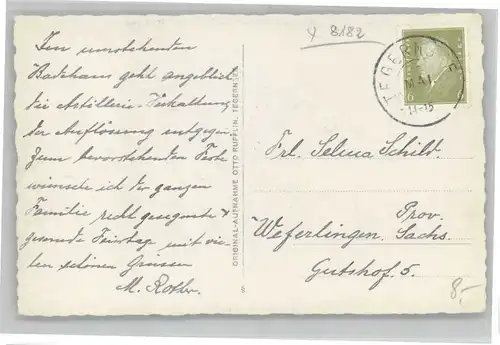 x 8182
Im umstehenden
Badehaus geht augenblickl.
die Artillerie-
der Auflösung entgegen.
Zum bevorstehenden Feste
wünsche ich der ganzen
Familie recht gesegnete &
gesunde Feiertage mit vie-
len schönen Grüssen
M. Rother.
ORIGINAL-AUFNAHME OTTO RUPPLIN, TEGERNSEE
TEGERNSEE
MAI
11-12
6
Frl. Selma Schild.
Prov.
Weferlingen, Sachs.
Gutshof 5.
8,-